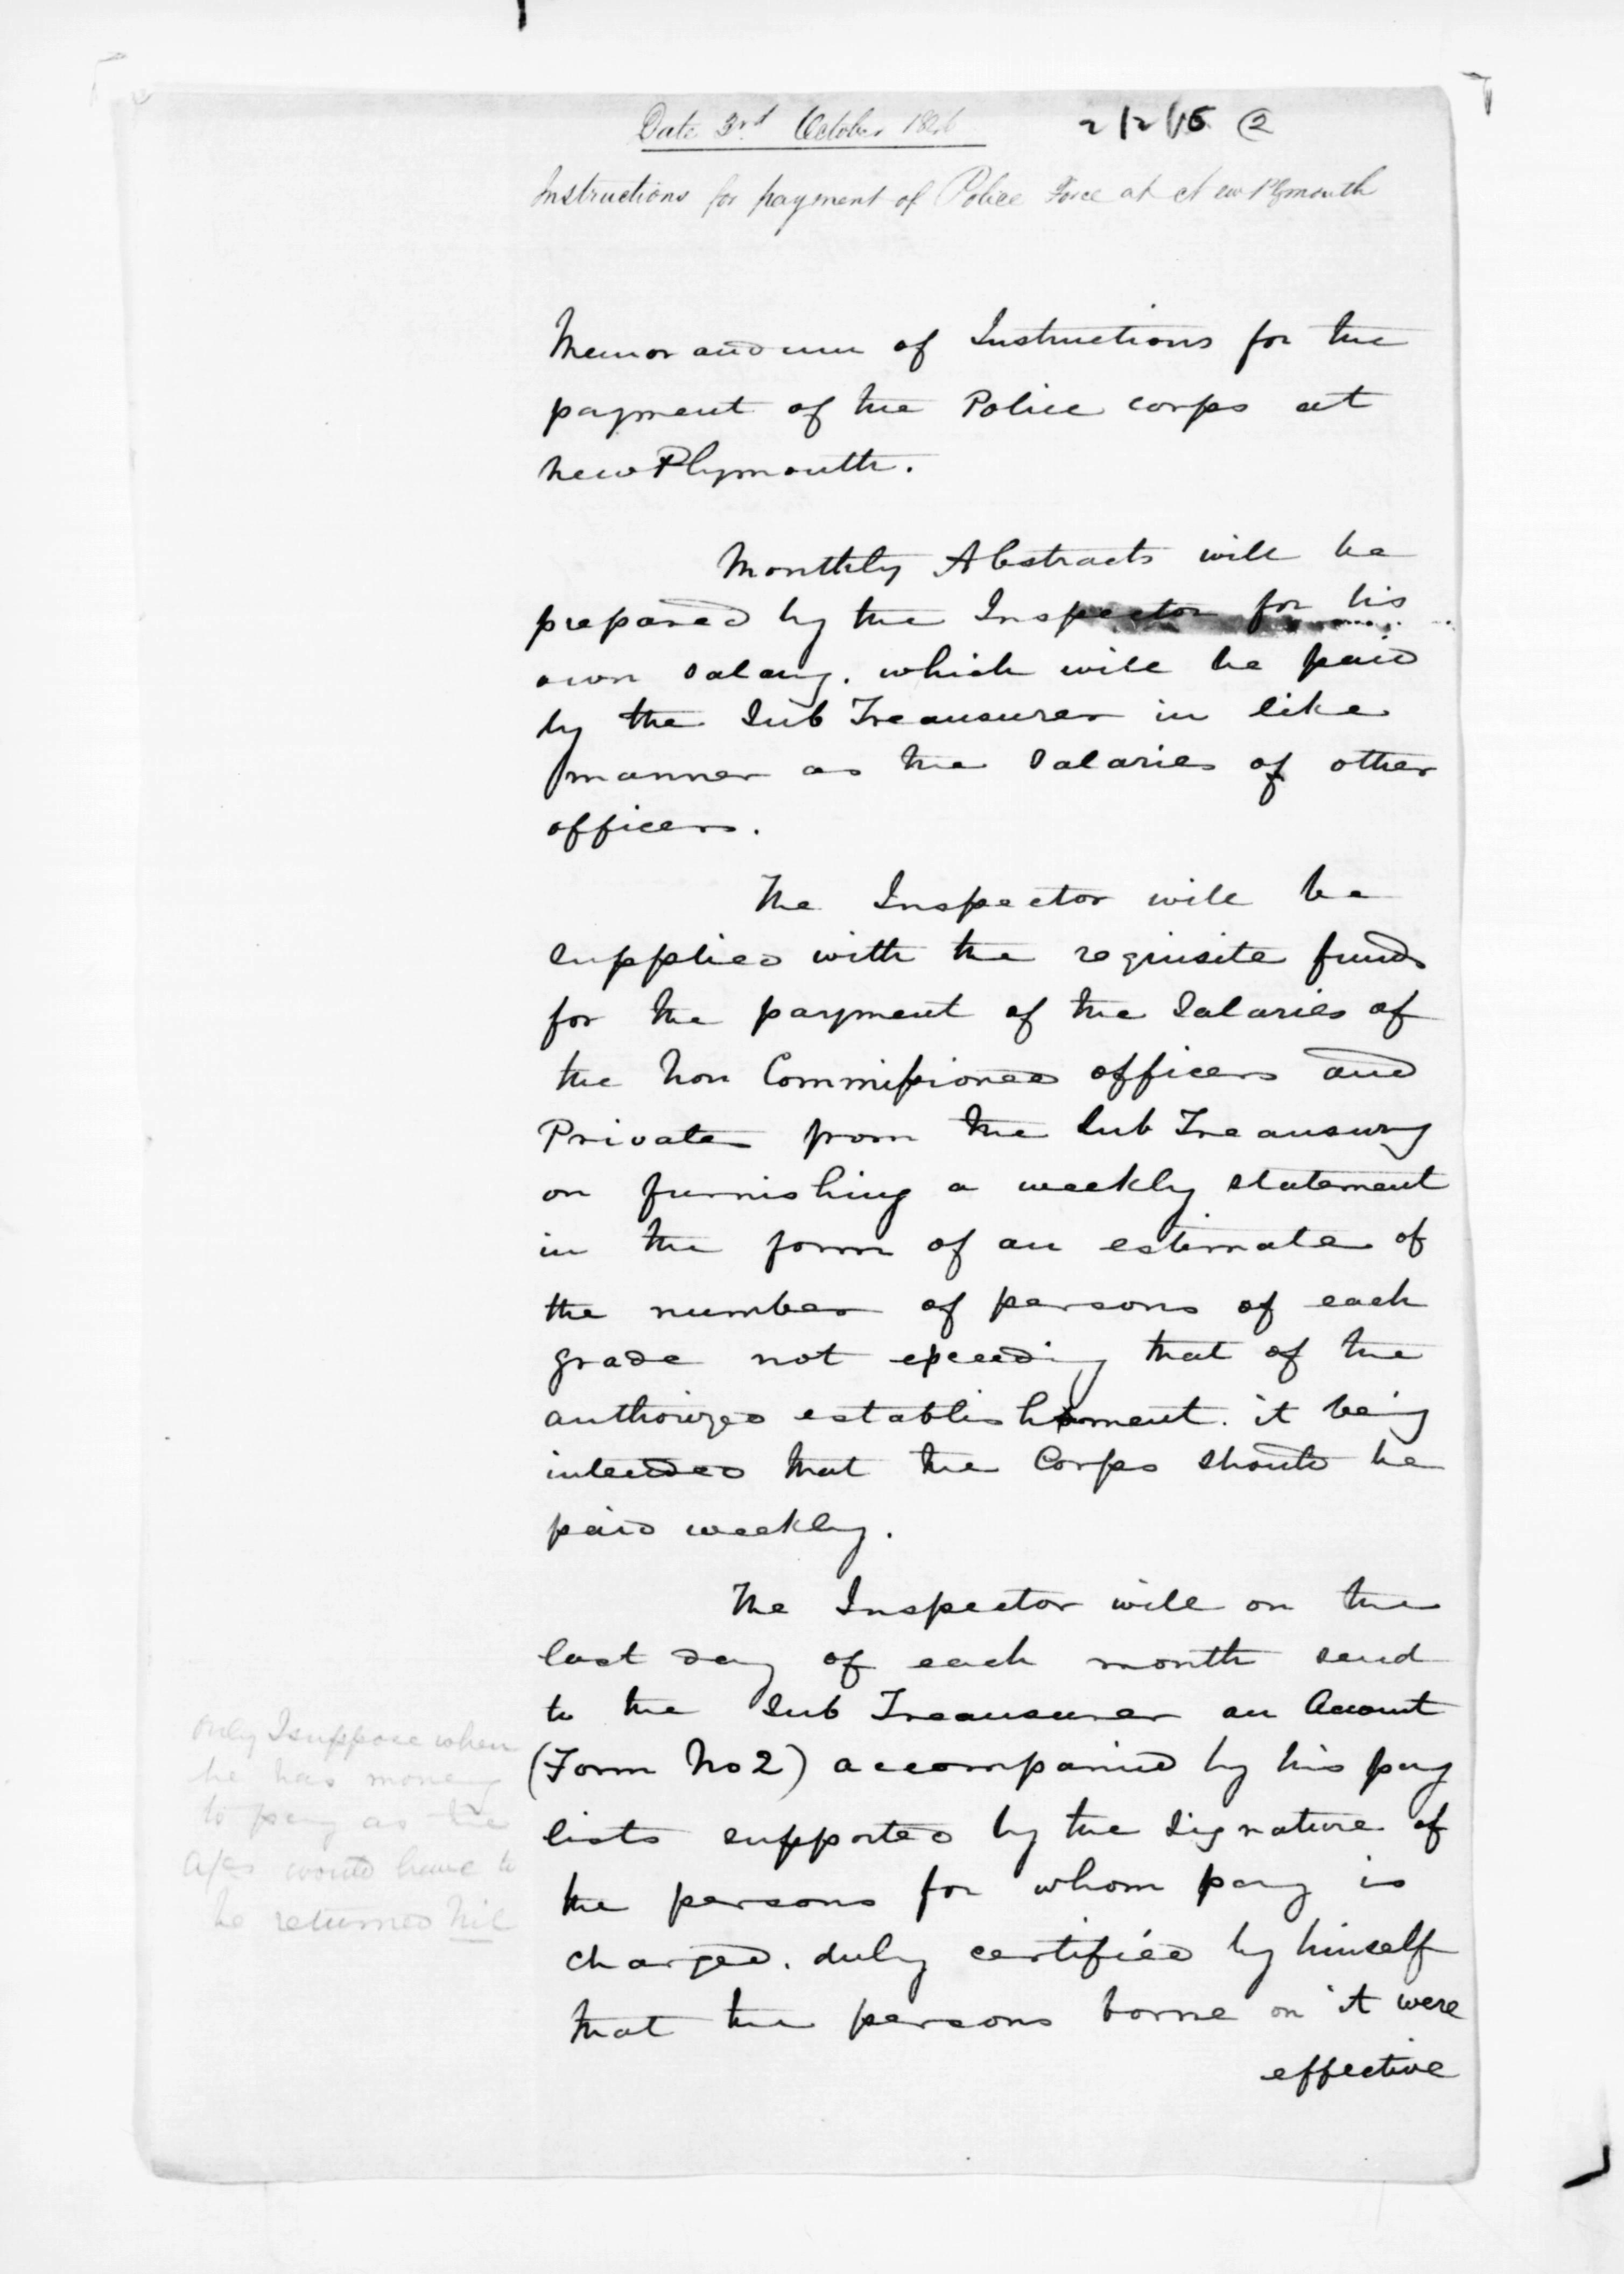 Date 3rd October 1846
2/2/15 (2
Instructions for payment of Police Force at New Plymouth
Memorandum of Instructions for the
payment of the Police corps at
New Plymouth.
Monthly Abstracts will be
prepared by the Inspector for his
own salary. which will be paid
by the Sub Treausurer in like
manner as the salaries of other
officers.
The Inspector will be
supplied with the requisite funds
for the payment of the Salaries of
the Non Commissioned officers and
Privates from the Sub Treausury
on furnishing a weekly statement
in the form of an estimate of
the number of persons of each
grade not exceeding that of the
authorized establishment. it being
intended that the Corps should be
paid weekly.
The Inspector will on the
last day of each month send
to the Sub Treausurer an Account
(Form No 2) accompanied by his pay
lists supported by the Signature of
the persons for whom pay is
charged. duly certified by himself
that the persons borne on it were
effective
Only I suppose when
he has money
to pay as the
A/cs would have to
be returned Nil